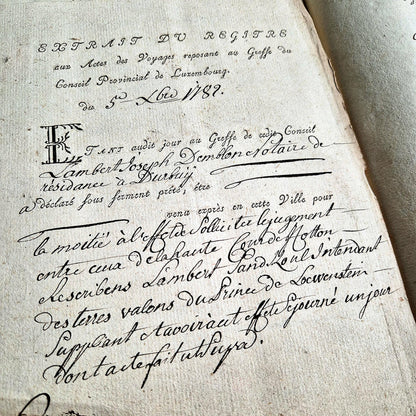 EXTRAIT DU REGITRE
aux Actes des Voyages reposant au Greffe du
Conseil Provincial de Luxembourg.
du 5e Xbre 1782.
ETANT audit jour au Greffe de cedit Conseil
Lambert Joseph Demblon Notaire de
résidance à Durbuÿ
a déclaré sous serment prêté, être
venu exprès en cette Ville pour
la moitié à l'effet de Solliciter le jugement
entre ceux de la haute Cour de Hotton
Rescribens Lambert Intendant
des terres valons du Prince de Loewenstein
Suppliant et avoir a cet effet Séjourné un jour
dont acte fait ut Supra.